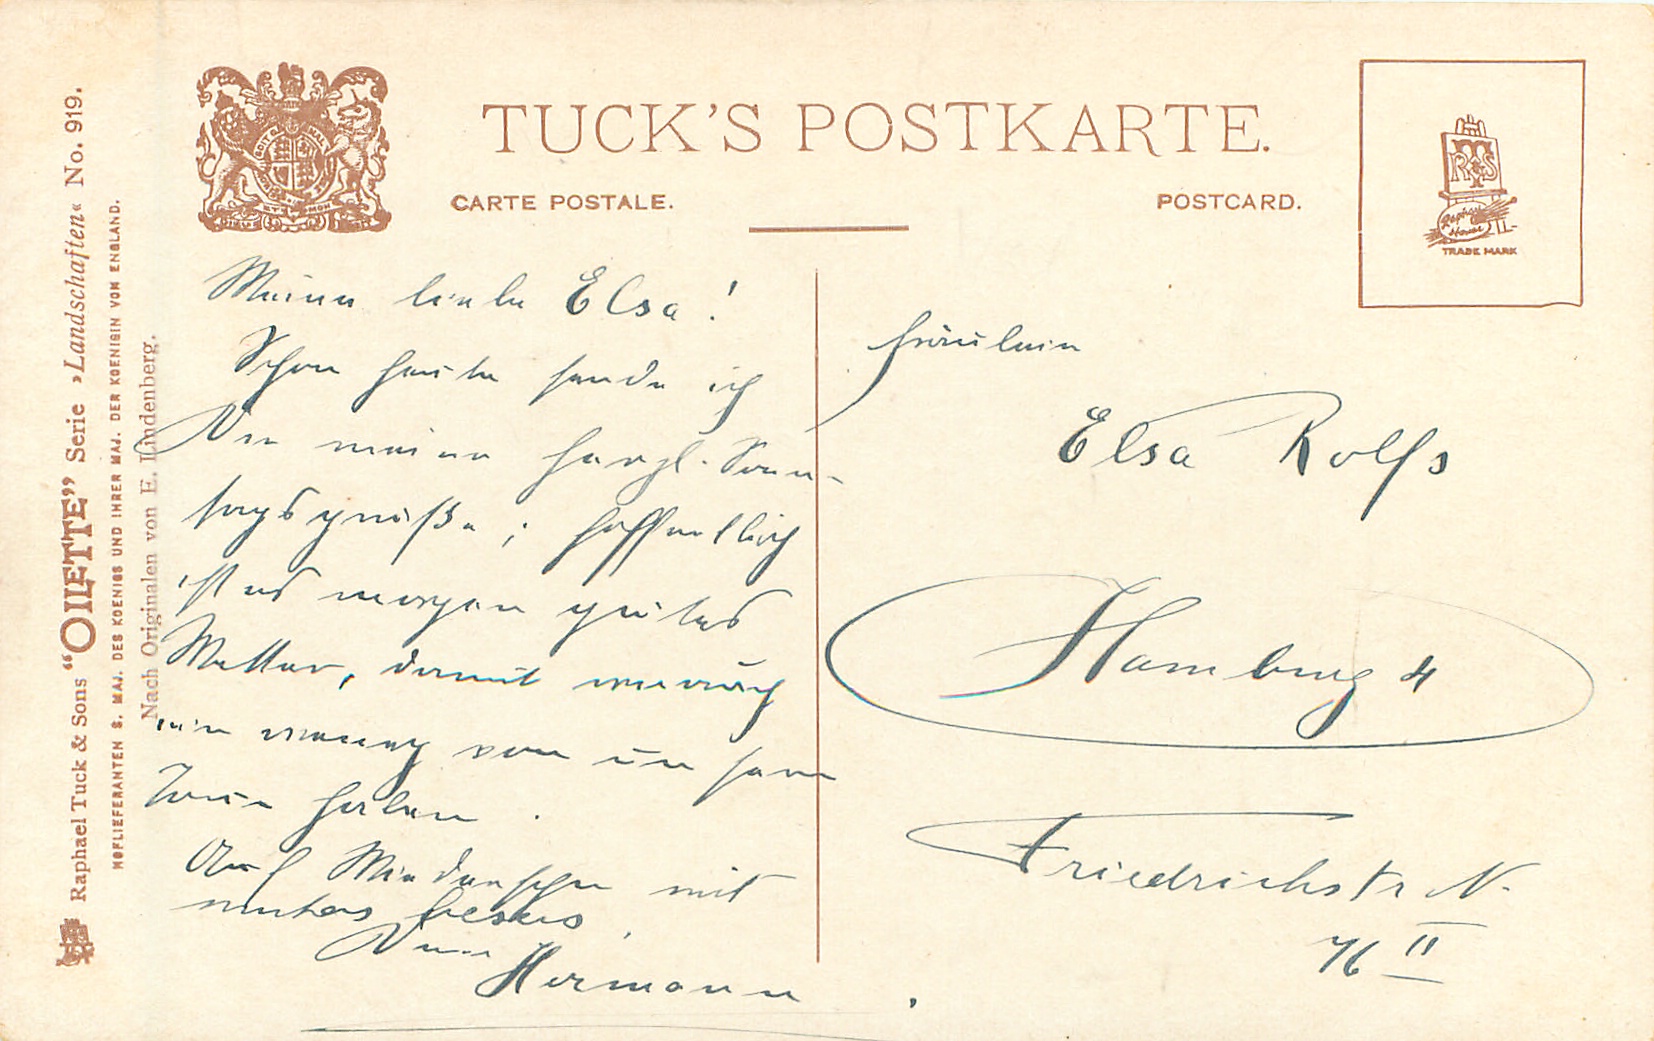 TUCK'S POSTKARTE.
CARTE POSTALE.
POSTCARD.
Raphael Tuck & Sons “OILETTE” Serie »Landschaften« No. 919.
HOFLIEFERANTEN S. MAJ. DES KOENIGS UND IHRER MAJ. DER KOENIGIN VON ENGLAND.
Nach Originalen von E. Lindenberg.
RTS
Raphael House
TRADE MARK
Meine liebe Elsa!
Schon heute sende ich
Dir meine herzl. Sonn-
tagsgrüße; hoffentlich
ist es morgen gutes
Wetter, damit
wenig von
haben.
Auf Wiedersehn mit
Dein
Hermann
Fräulein
Elsa Rolfs
Hamburg 4
Friedrichstr N.
76 II